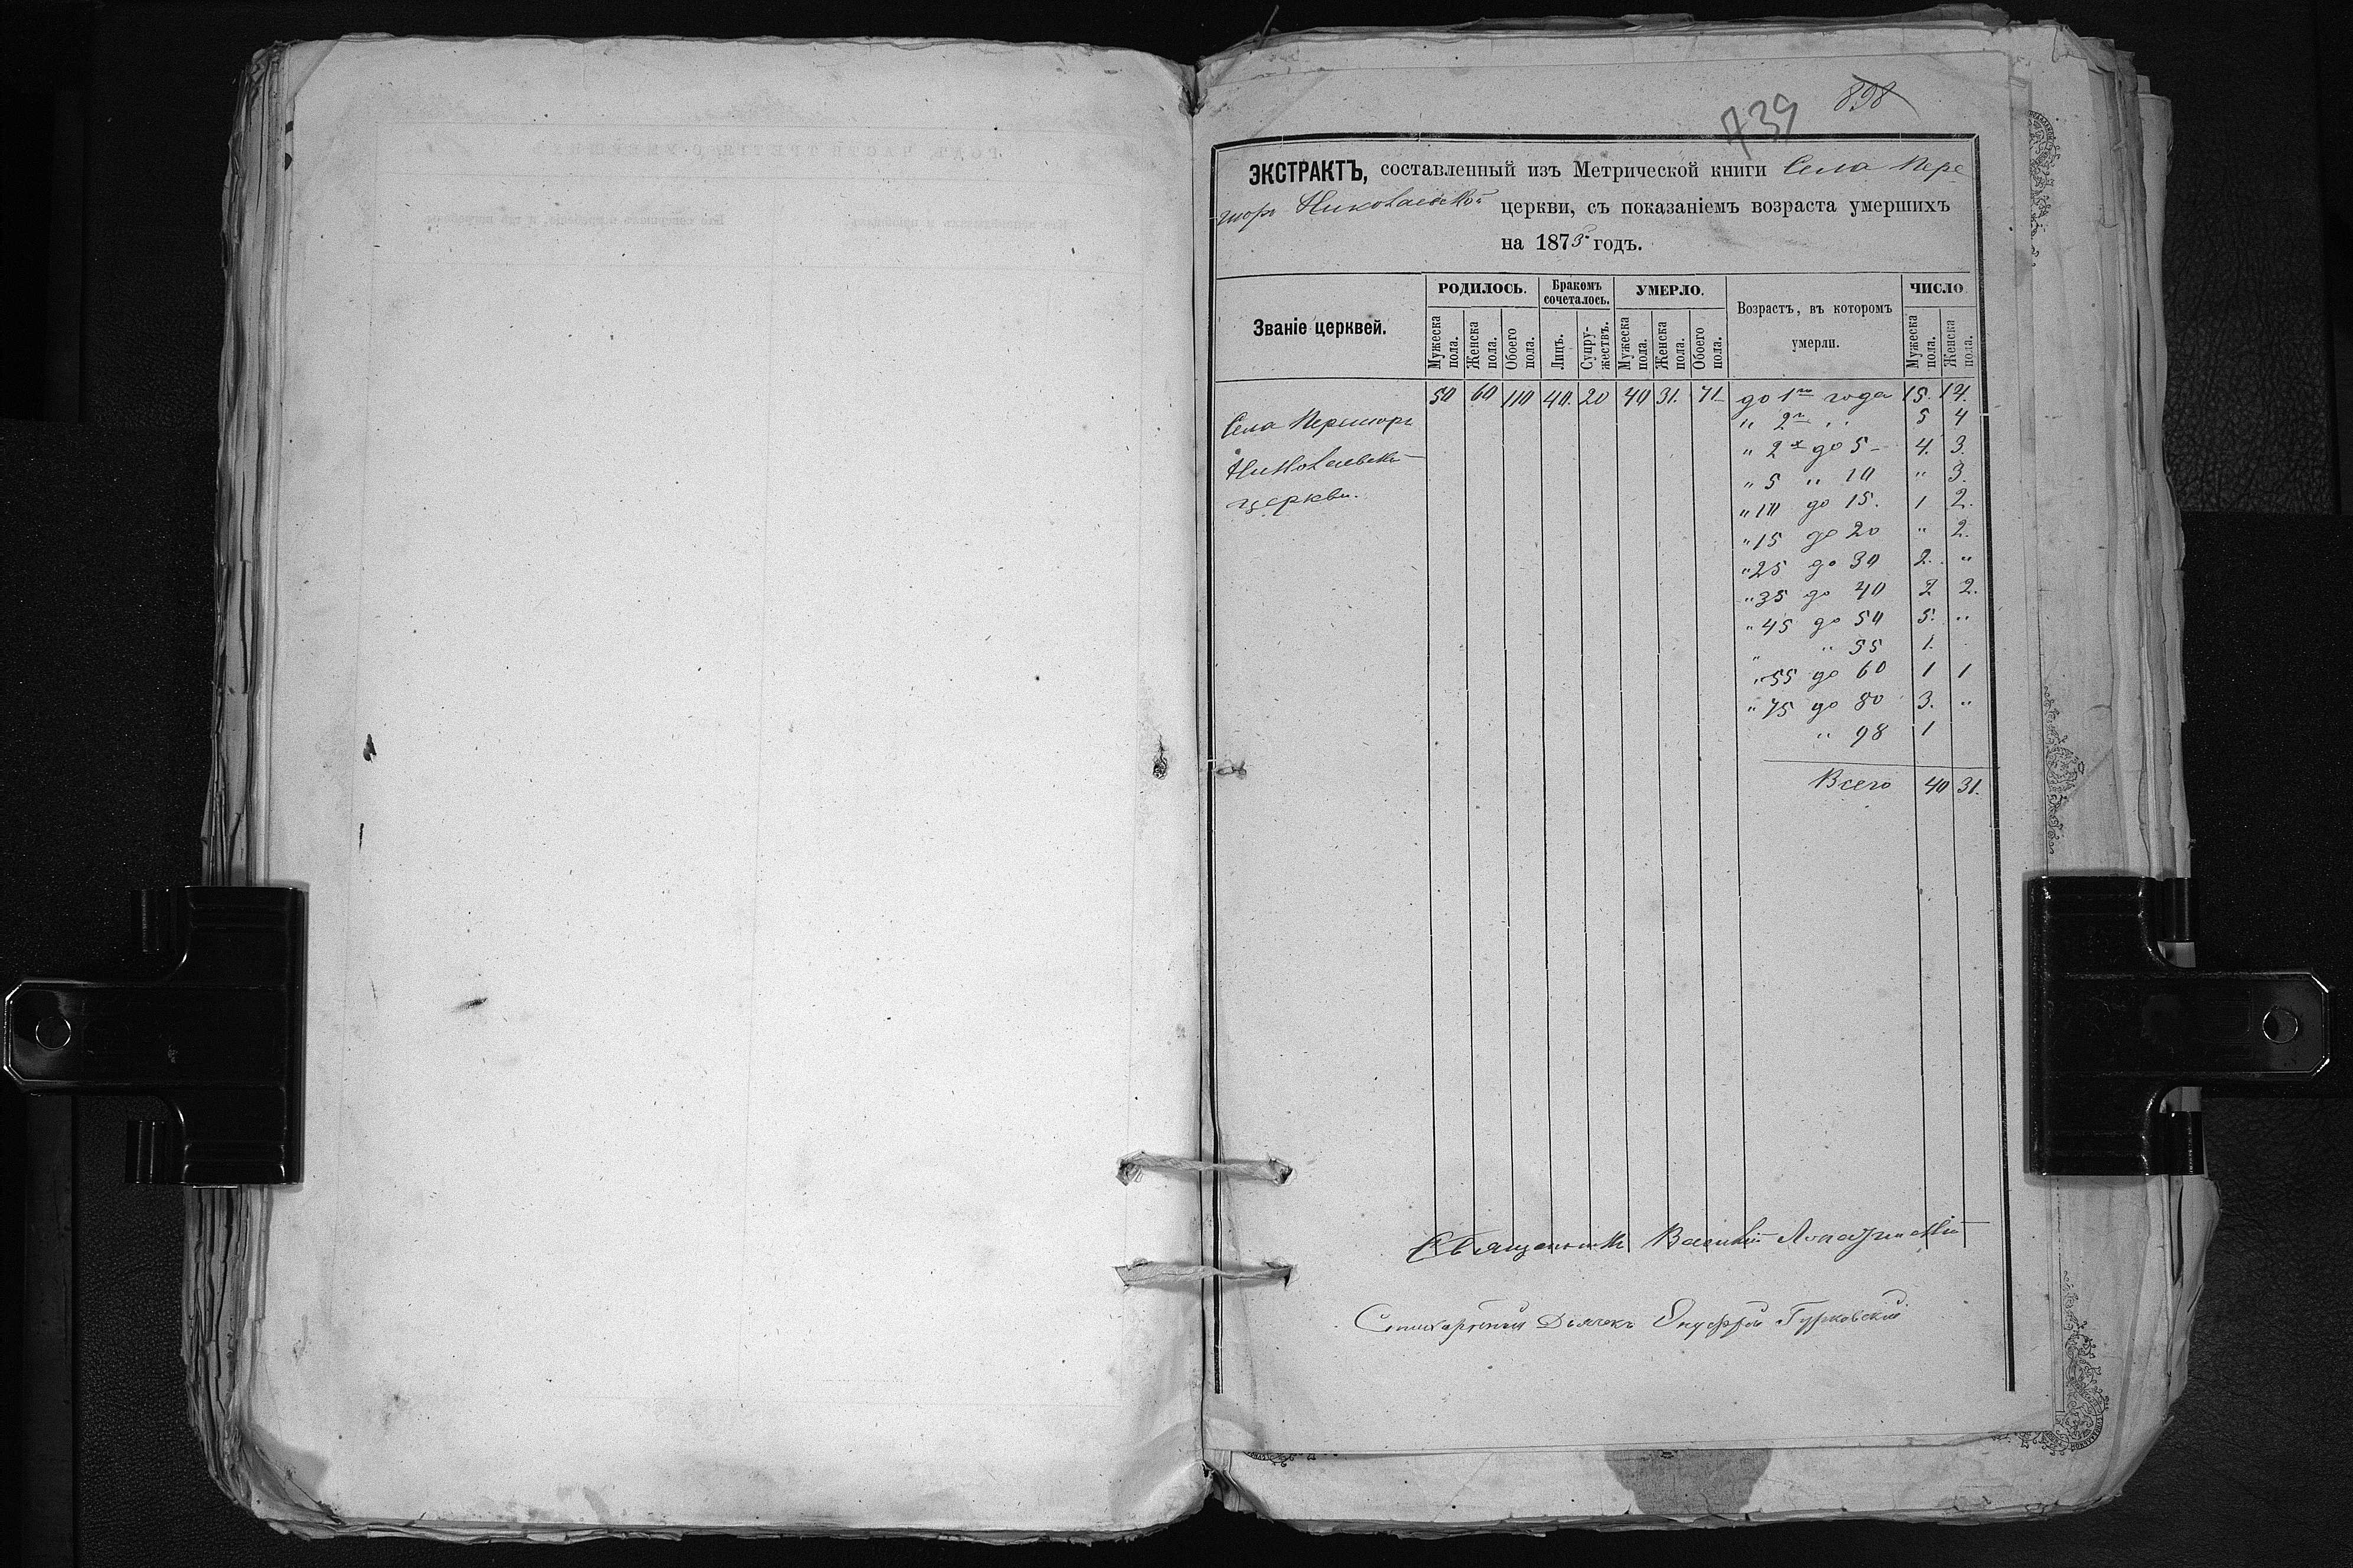 898
739
ЭКСТРАКТЪ, составленный изъ Метрической книги Села Пере-
Николаевской церкви, съ показаніемъ возраста умершихъ
на 1875 годъ.
Званіе церквей.
РОДИЛОСЬ.
Бракомъ сочеталось.
УМЕРЛО.
Возрастъ, въ которомъ умерли.
ЧИСЛО
Мужеска пола.
Женска пола.
Обоего пола.
Лицъ.
Супру-жествъ.
Мужеска пола.
Женска пола.
Обоего пола.
Мужеска пола.
Женска пола.
50 60 110 40. 20 40 31. 71 до 1го года 15. 14.
Села
" 2 " 5 4
" 2х до 5 4. 3.
Николаевской
" 5 " 10 " 3.
церкви.
" 10 до 15. 1 2.
" 15 до 20 " 2.
" 25 до 30 2. "
" 35 до 40 2 2.
" 45 до 50 5. "
" " 55 1.
" 55 до 60 1 1
" 75 до 80 3. "
" 98 1
Всего 40 31.
Священникъ Василій
Стихарный Дьячекъ Онуфрій Гурковскій